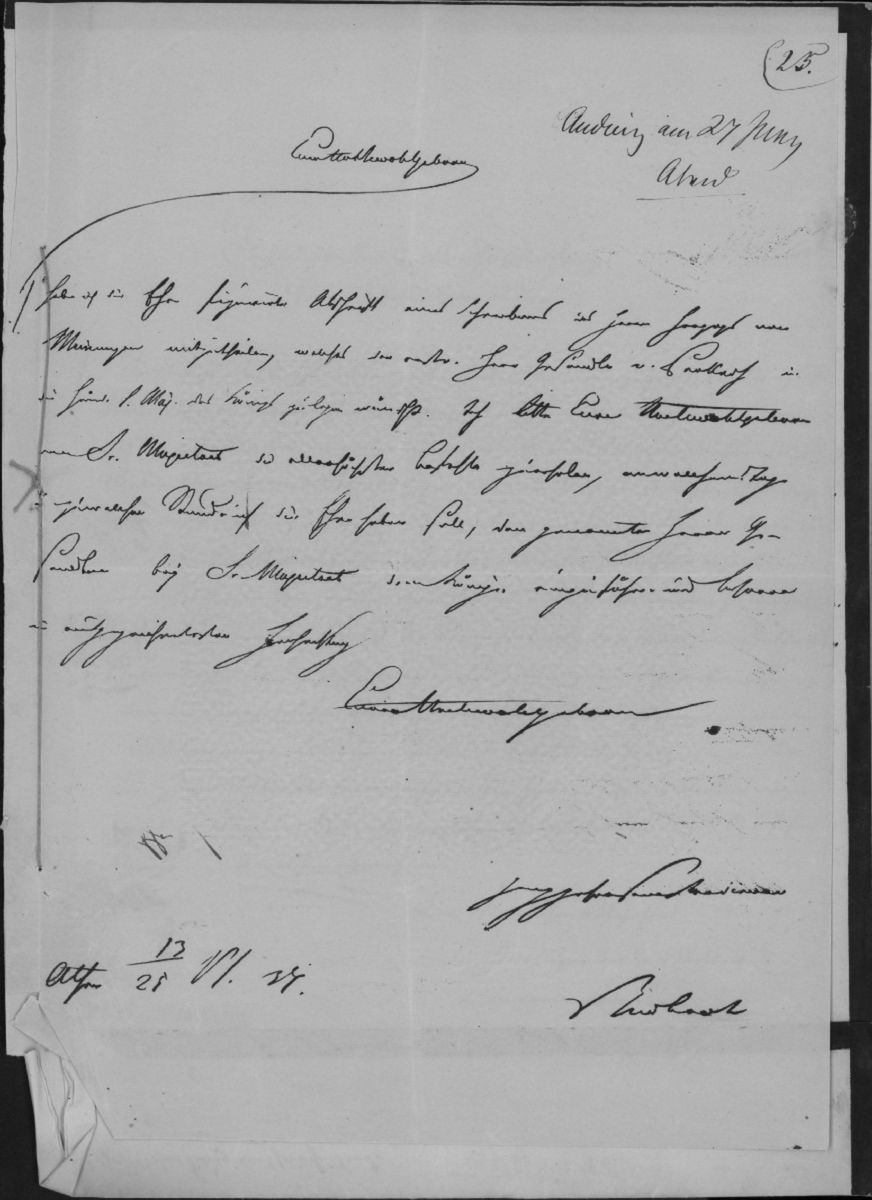 25.
Audienz am 27 Juny
Abend
Euer Hochwohlgeboren
habe ich die Ehre Abschrift eines Schreibens des Herrn Herzogs von
Meiningen mitzutheilen, welches der Herr Gesandte v. in
die Hände S. Maj. des Königs zu legen wünscht. Ich bitte Euer Hochwohlgeboren
von Sr. Majestaet die allerhöchsten Befehle zu erholen, an welchem Tag
u. zu welcher Stunde ich die Ehre haben soll, den genannten Herrn Ge-
sandten bey Sr. Majestaet dem Könige einzuführen und beharre
in ausgezeichnetster Hochachtung
Euer Hochwohlgeboren
Athen 13/25 VI. 39.
Rudhart